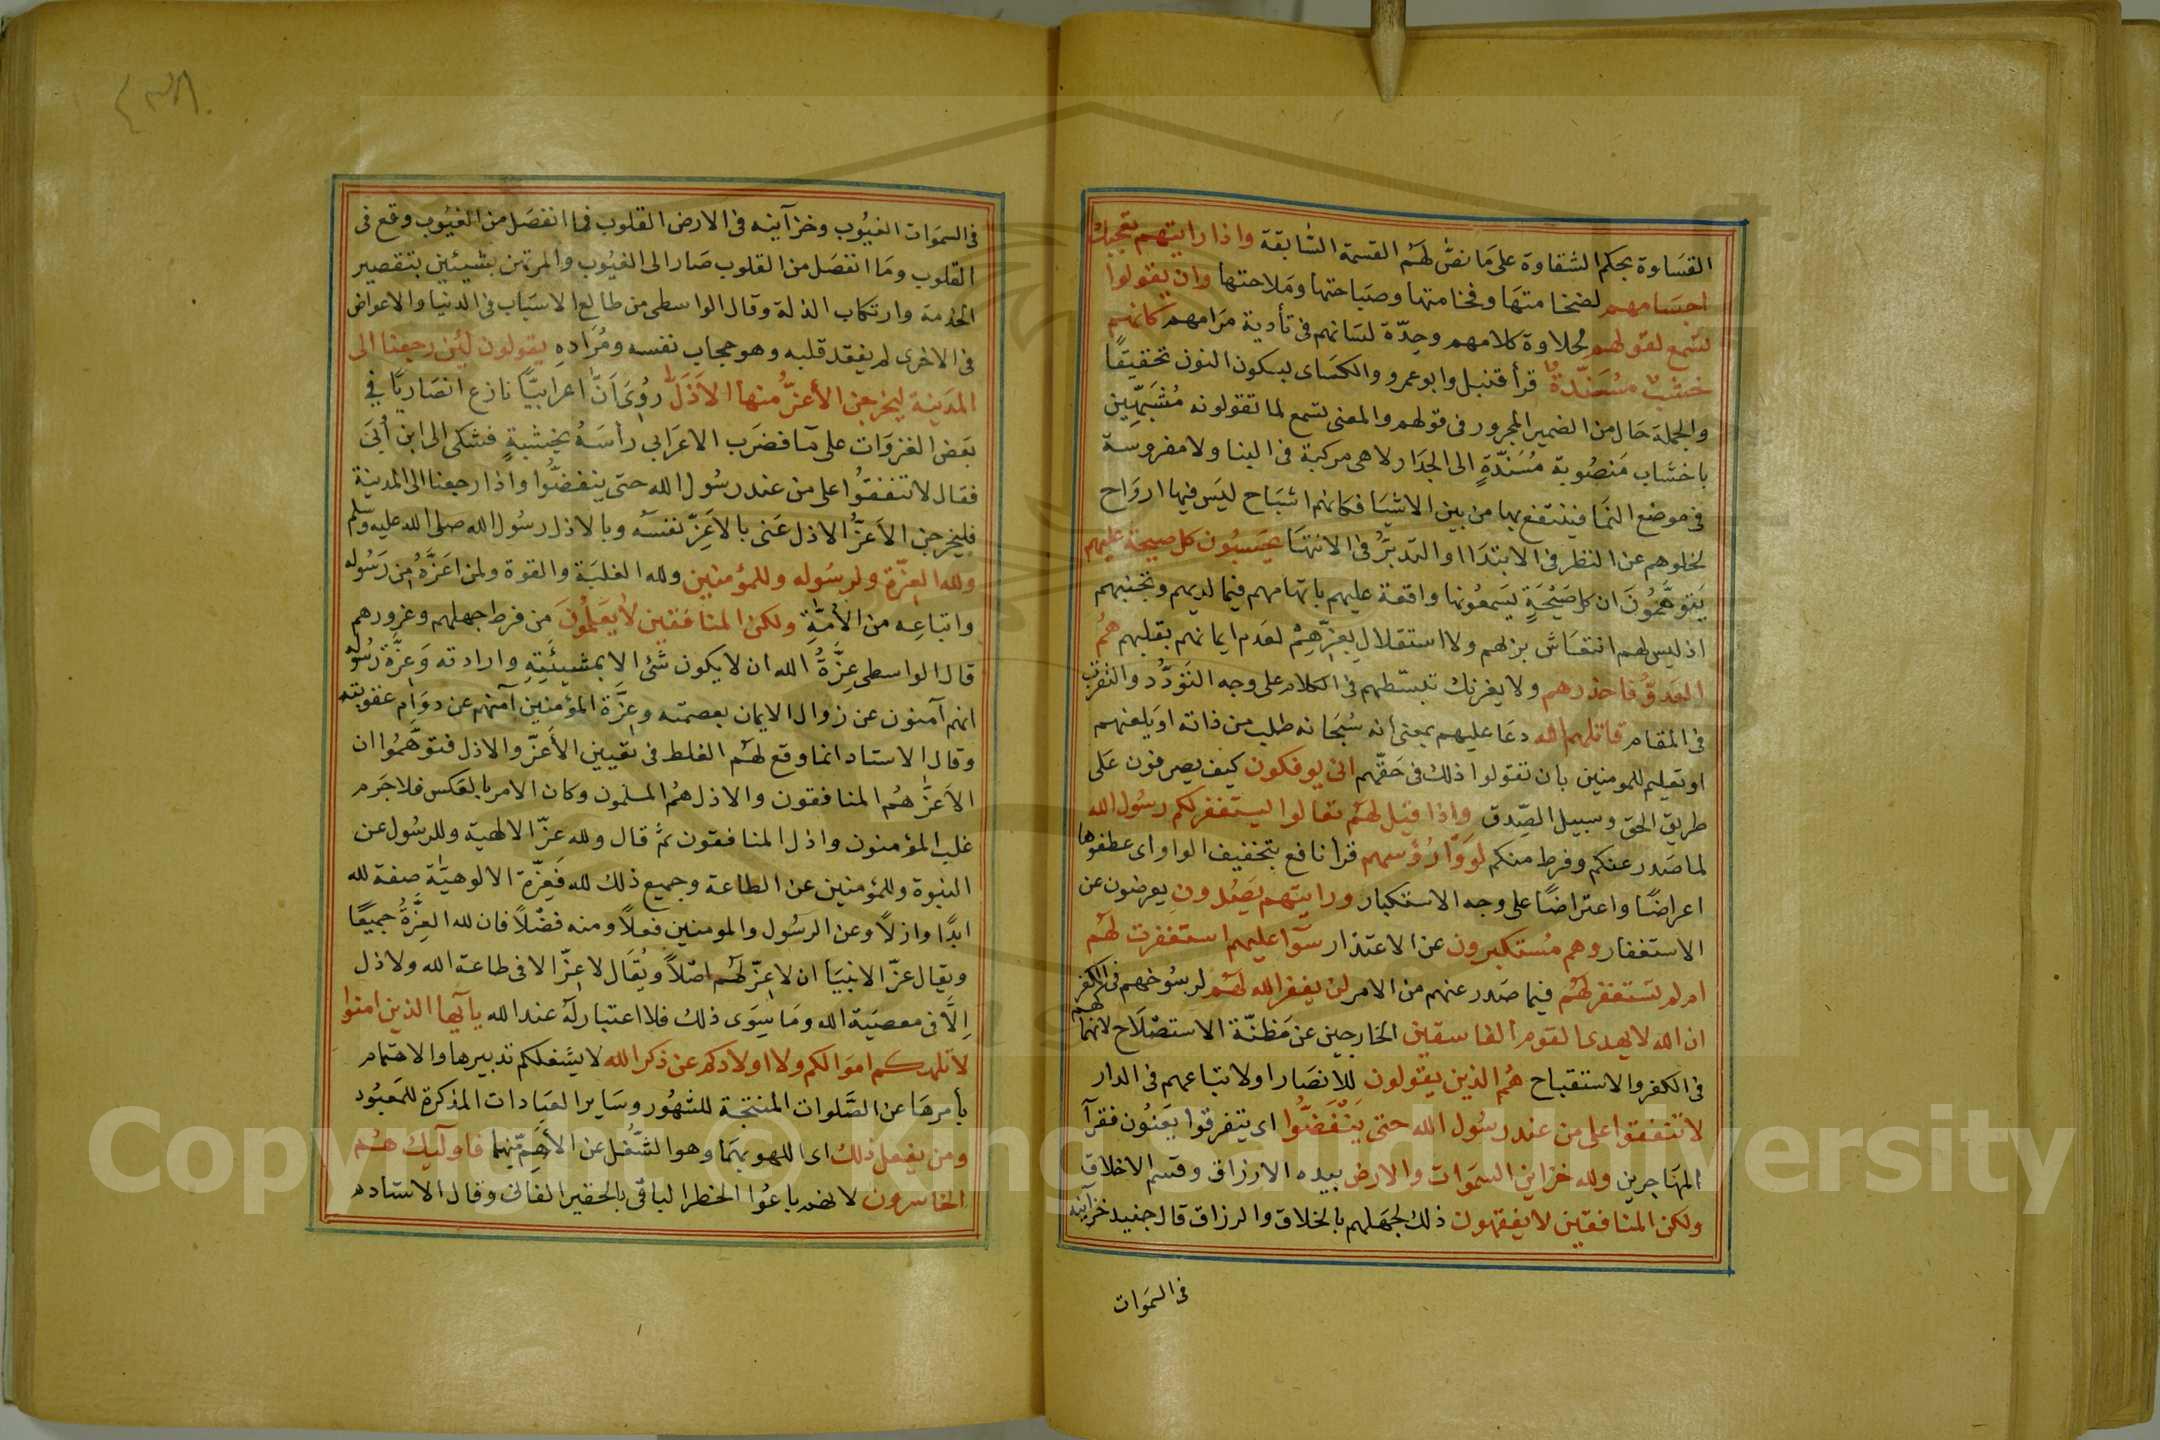 القساوة بحكم الشقاوة على مَا نصّ لهُم القسمة السّابقة واذا رايتهم تعجبك
اجسَامهم لضخامتهَا وفخامتها وصبَاحتها ومَلاحتها وان يقولوا
تسمع لقولهم لحلاوة كلامهم وحِدّة لسَانهم فى تأدية مَرَامهم كانهم
خشبٌ مسُنّدةٌ قرأ قنبل وابو عمرو والكسَاى بسكون النون تخفيفًا
والجملة حَال من الضمير المجرور فى قولهم والمعنى تسمع لما تقولونه مُشَبّهِين
باخشاب مَنصُوبة مُسَنّدَةٍ الى الجدَار لا هى مركبة فى البنا ولا مغروسة
فى موضع النمَا فينتفع بها من بين الاشيَا فكانهم اشبَاح ليَس فيها اروَاح
لخلوهم عن النظر فى الابتدَا والتدبّرُ فى الانتهَا يحَسَبُون كل صيحة عليهم
يَتوَهَّمُونَ ان كل صَيْحَةٍ يسَمعُونها واقعة عليهم باتهامهم فيما لديهم وتجنبهم
اذ ليس لهم انتعَاش بربهم ولا استقلال بِعزّهِمْ لعَدم ايمانهم بقلبهم همُ
العَدوُّ فاحذرهم ولا يغرنك تبسّطهم فى الكلام على وجه التَودُّد والتقرب
فى المقام قاتلهم الله دعَا عليهم بمعنى أنه سُبحَانه طلب من ذاته او يَلعنهم
او تعليم للمومنين بان تقولوا ذلك فى حَقّهم انى يوفكون كيف يصرفون عَلى
طريق الحق وسبيل الصِّدق واذا قيل لهُم تعالوا ليستغفر لكم رسُول الله
لما صَدر عنكم وفرط منكم لَوَوْا رُؤسهم قرا نافع بتخفيف الواو اى عطفوها
اعراضًا واعتراضًا على وجه الاستكبار ورايتهم يَصُدون يعرضون عن
الاستغفار وهم مُستكبرون عن الاعتذار سَوآ عليهم استغفرت لهُم
ام لم تستغفر لهُم فيما صَدر عنهم من الامر لن يغفر الله لهُم لرسُوخهم فى الكفر
ان الله لا يهدى القوم الفاسقين الخارجين عن مَظنّة الاستصْلَاح لانهماكهم
فى الكفر والاستقباح هُم الذين يقولون للأنصَار او لاتباعهم فى الدار
لا تنفقوا على من عند رسُول الله حتى يَنْفَضُّوا اى يتفرقوا يَعنُون فقرآ
المهَاجرين ولله خزاين السمَوات والارض بيده الارزاق وقسم الاخلاق
ولكن المنافقين لا يفقهون ذلك لجهَلهم بالخلاق والرزاق قال جنيد خزآينه
فى السمَوات
فى السمَوات الغيُوب وخزآينه فى الارض القلوب فما انفصَل من الغيُوب وقع فى
القلوب ومَا انفصَل من القلوب صَار الى الغيُوب والمرتهن بشيئين بتقصير
الخدمة وارتكاب الذلة وقال الواسطى من طالع الاسبَاب فى الدنيا والاعواض
فى الاخرى لم يفقد قلبه وهو حجاب نفسه ومُرَادِهِ يقولون لئن رجعنا الى
المدَينة ليخرجن الأعزُّ منها الاَذَلّ رُوِىَ اَنّ اعرابيًّا نازع انصَاريًّا فى
بعَض الغزوَات على مآ فضرَب الاعرَابى رأسَهُ بخشبةٍ فشكى الى ابن أُبَىّ
فقال لا تنفقوُا على من عند رسُول الله حتى ينفضُّوا واذا رجعنا الى المدَينة
فليخرجن الاَعزُّ الاذل عَنى بالاَعَزِّ نفسَه وبالاذل رسُول الله صلى الله عليه وسلم
ولله العِزّة ولرسُوله وللمؤمنين ولله الغلبَة والقوة ولمن اعَزَّهُ من رَسُوله
واتباعِه من الأُمّةِ ولكن المنافقين لا يَعَلمُونَ من فرط جهلهم وغرورهم
قال الواسطى عِزَّةُ الله ان لا يكون شئ الا بمشيئَتِهِ وارادته وَعزَّة رَسُوله
انهم آمنون عن زوال الايمان بعصمته وعِزَّة المؤمنين آمنهم عن دوَام عقوبته
وقال الاستاد انما وقع لهُم الغلط فى تعيين الأَعزّ والاذل فتوَهَّمُوا ان
الاَعزّ هُم المنافقون والاذل همُ المسلمون وكان الامر بالعَكس فلا جَرم
غلب المؤمنون واذل المنافقون ثمّ قال ولله عزّ الالهية وللرسُول عن
النبوة وللمؤمنين عن الطاعة وجميع ذلك لله فَعِزّة الالوهيّة صفة لله
ابدًا وازلاً وعن الرسُول والمومنين فعلاً ومنه فضْلاً فان لله العِزَّةُ جميعًا
ويقال عزّ الانبيَا ان لا عِزّ لهُم اصْلاً ويُقَال لا عِزّ الا فى طاعة الله ولا ذل
اِلاَّ فى معصَية الله ومَا سِوَى ذلك فلا اعتبار له عند الله يا آيها الذين امنوا
لا تلهكم اموَالكم ولا اولادكم عن ذكر الله لا يشغلكم تدبيرها والاهتمام
بأمرهَا عن الصَّلوات المنتجة للشهُور وسَاير العبَادات المذكرة للمَعبُود
ومن يفعل ذلك اى اللهو بهمَا وهو الشّغُل عن الأَهِمّ بهما فاولَيك هُم
الخاسرون لانهم باعُوا الخطر الباقى بالحقير الفانى وقال الاستاده